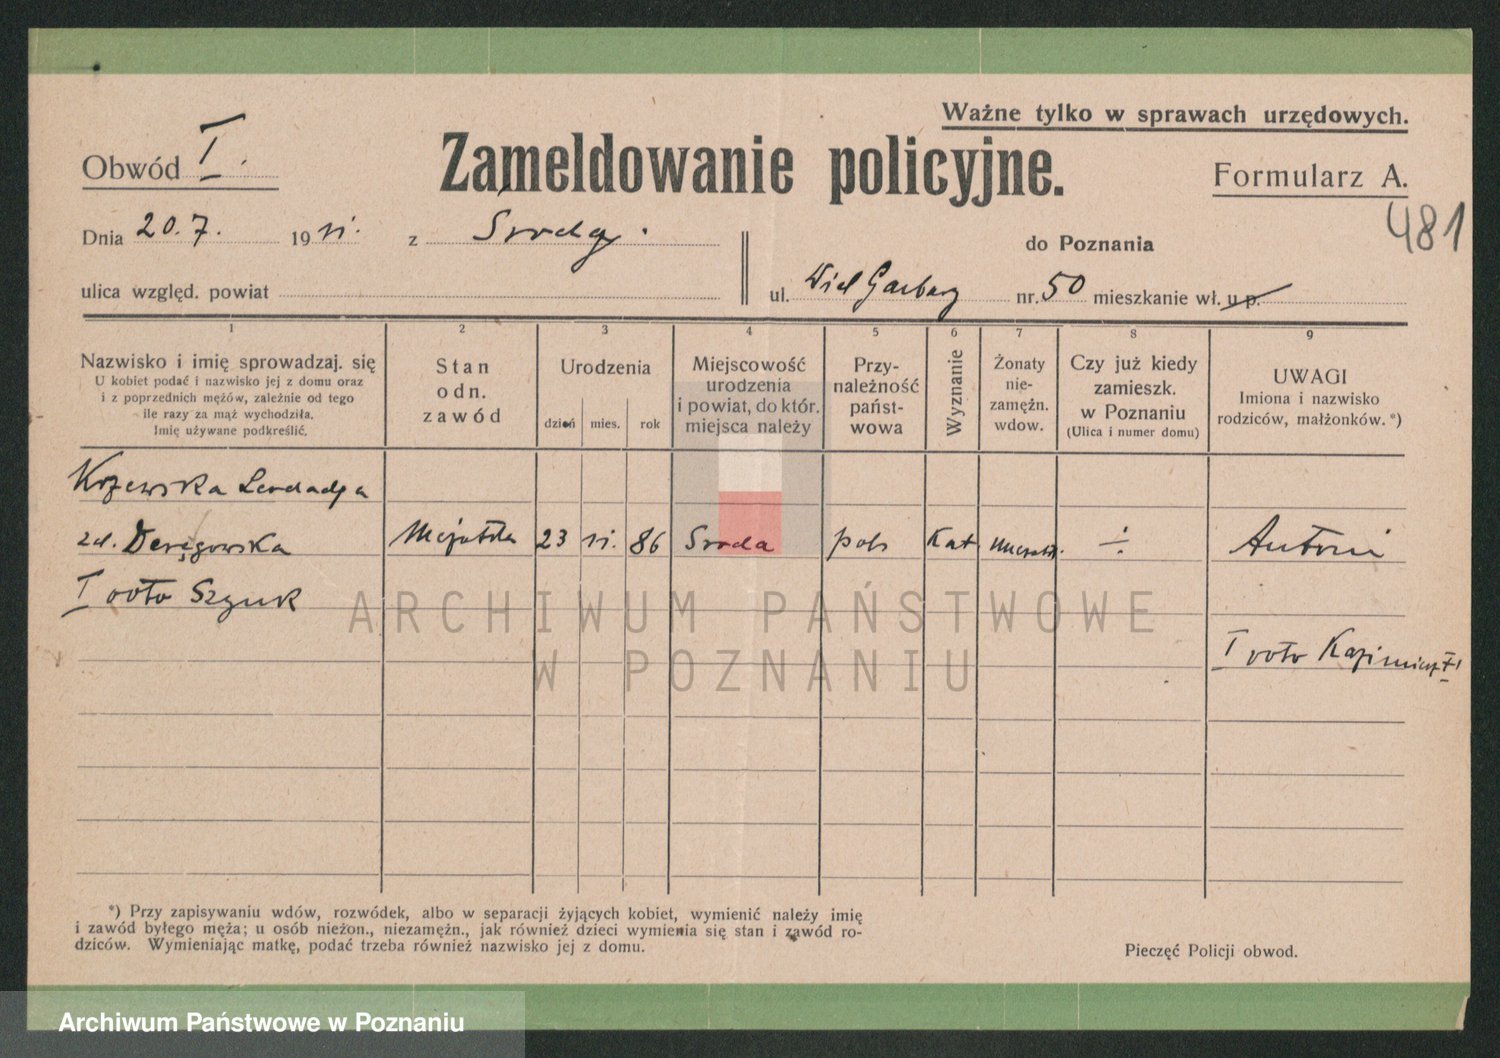 Ważne tylko w sprawach urzędowych.
Obwód I.
Zameldowanie policyjne.
Formularz A.
481
Dnia 20. 7. 19 z Środy.
do Poznania
ulica względ. powiat
ul. Wiel Garbary nr. 50 mieszkanie wł. u p.
1 2 3 4 5 6 7 8 9
Nazwisko i imię sprowadzaj. się
U kobiet podać i nazwisko jej z domu oraz
i z poprzednich mężów, zależnie od tego
ile razy za mąż wychodziła.
Imię używane podkreślić.
Stan
odn.
zawód
Urodzenia
dzień mies. rok
Miejscowość
urodzenia
i powiat, do któr.
miejsca należy
Przy-
należność
państ-
wowa
Wyznanie
Żonaty
nie-
zamężn.
wdow.
Czy już kiedy
zamieszk.
w Poznaniu
(Ulica i numer domu)
UWAGI
Imiona i nazwisko
rodziców, małżonków. *)
Krzewska
zd. Deręgowska 23 86 Środa pols Kat ÷ Antoni
I voto Szguk
I voto
ARCHIWUM PAŃSTWOWE
W POZNANIU
*) Przy zapisywaniu wdów, rozwódek, albo w separacji żyjących kobiet, wymienić należy imię
i zawód byłego męża; u osób nieżon., niezamężn., jak również dzieci wymienia się stan i zawód ro-
dziców. Wymieniając matkę, podać trzeba również nazwisko jej z domu.
Pieczęć Policji obwod.
Archiwum Państwowe w Poznaniu